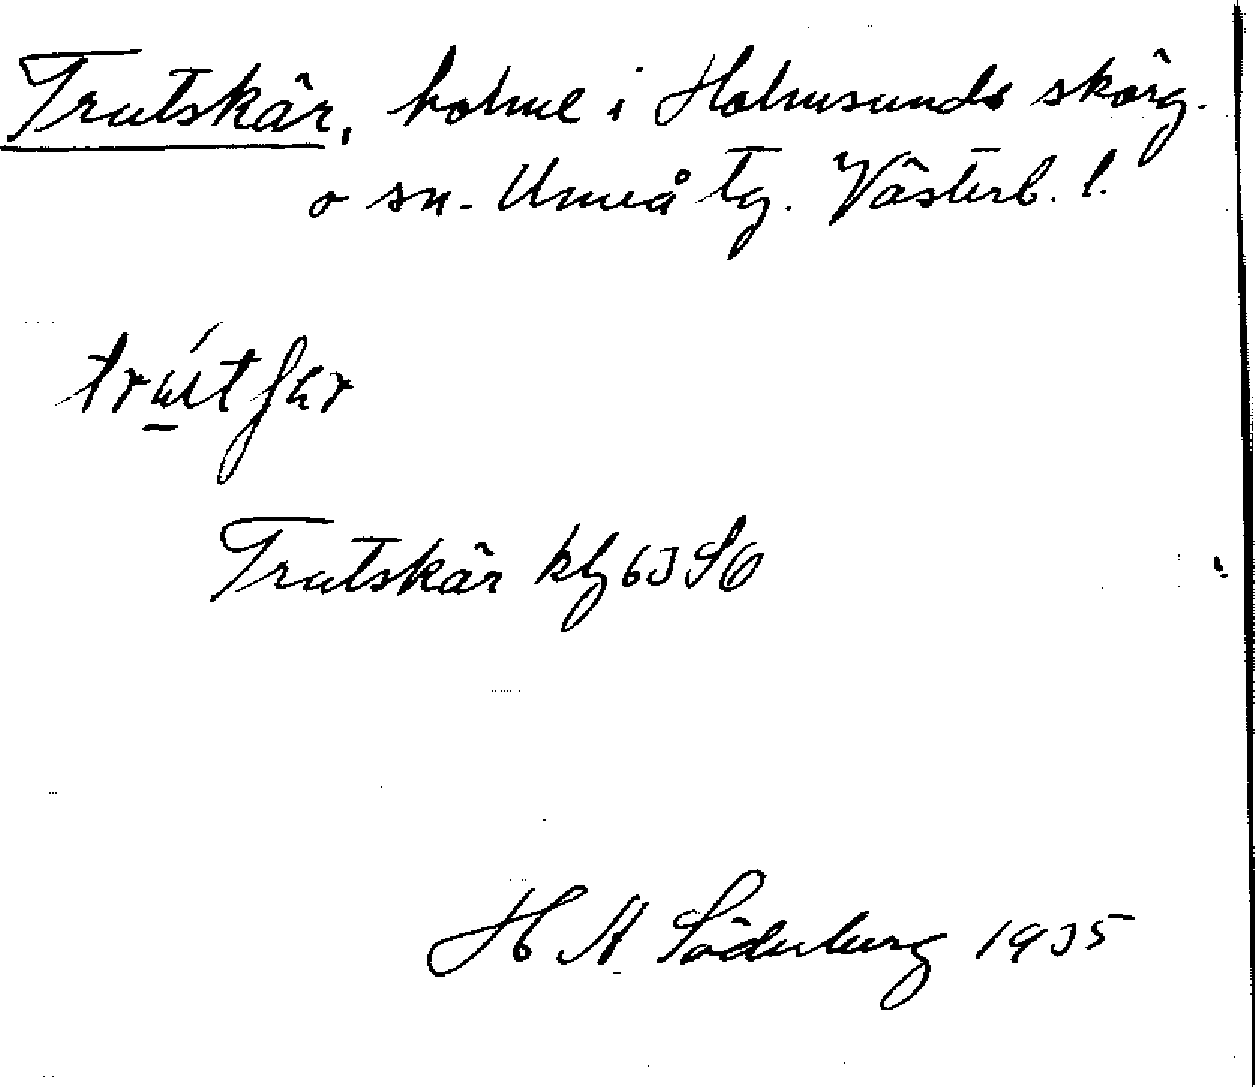 Trutskär, holme i Holmsunds skärg.
o sn. Umeå tg. Västerb. l.
trútʃær
Trutskär kbl 63 SO
H A Söderberg 1935